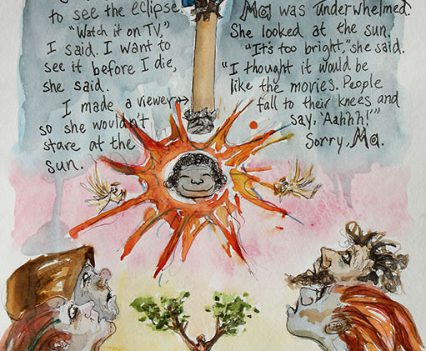 to see the eclipse.
"Watch it on TV,"
I said. I want to
see it before I die,
she said.
I made a viewer→
so she wouldn't
stare at the
sun.
Ma was underwhelmed.
She looked at the sun.
"It's too bright," she said.
"I thought it would be
like the movies. People
fall to their knees and
say, 'Aahhh!'"
Sorry, Ma.